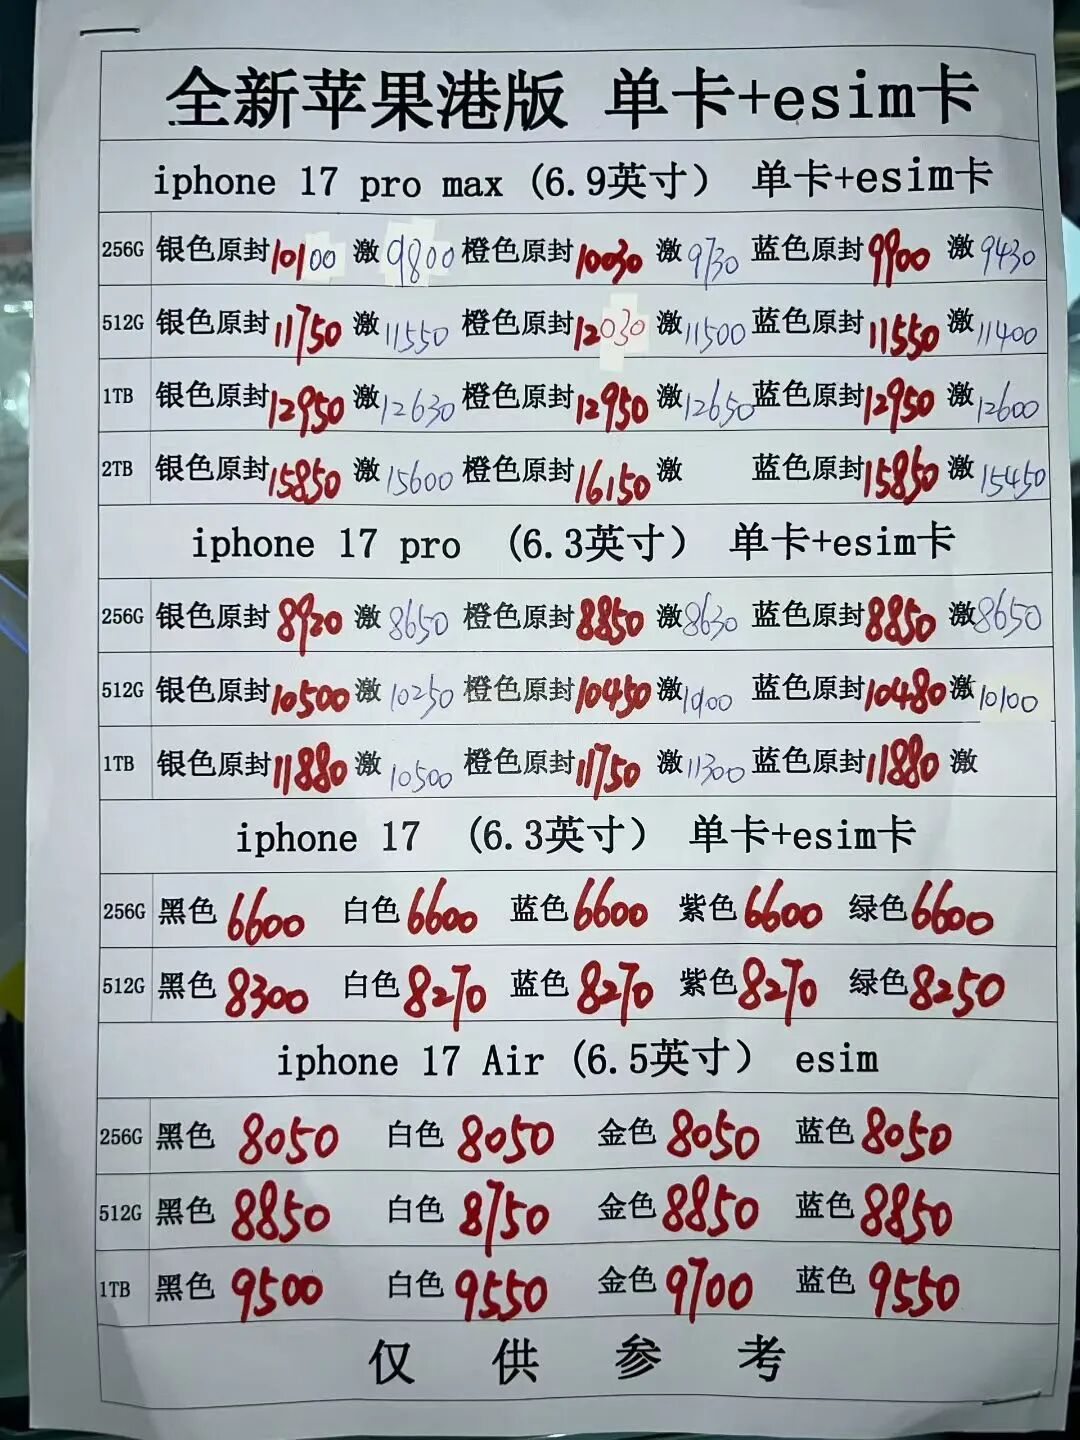 全新苹果港版 单卡+esim卡
iphone 17 pro max (6.9英寸) 单卡+esim卡
256G 银色原封10100 激9800 橙色原封10030 激9730 蓝色原封9900 激9430
512G 银色原封11750 激11550 橙色原封12030 激11500 蓝色原封11550 激11400
1TB 银色原封12950 激12630 橙色原封12950 激12650 蓝色原封12950 激12600
2TB 银色原封15850 激15600 橙色原封16150 激 蓝色原封15850 激15450
iphone 17 pro (6.3英寸) 单卡+esim卡
256G 银色原封8920 激8650 橙色原封8850 激8630 蓝色原封8850 激8650
512G 银色原封10500 激10250 橙色原封10450 激 蓝色原封10480 激10100
1TB 银色原封11880 激10500 橙色原封11750 激11300 蓝色原封11880 激
iphone 17 (6.3英寸) 单卡+esim卡
256G 黑色6600 白色6600 蓝色6600 紫色6600 绿色6600
512G 黑色8300 白色8270 蓝色8270 紫色8270 绿色8250
iphone 17 Air (6.5英寸) esim
256G 黑色 8050 白色 8050 金色 8050 蓝色 8050
512G 黑色 8850 白色 8750 金色 8850 蓝色 8850
1TB 黑色 9500 白色 9550 金色 9700 蓝色 9550
仅 供 参 考